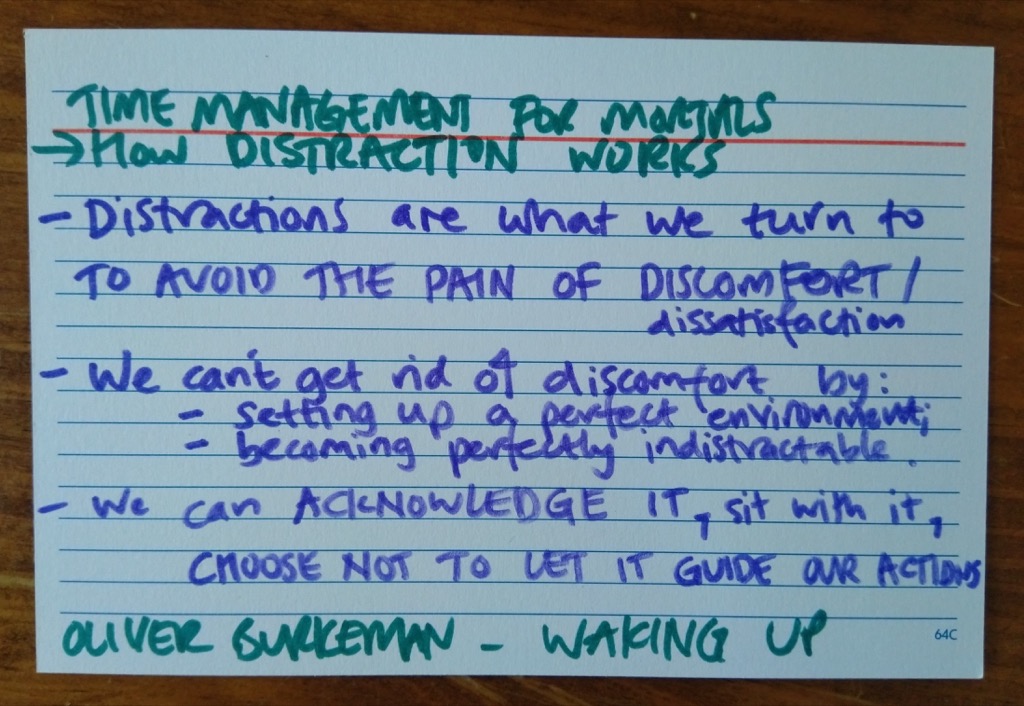 TIME MANAGEMENT FOR MORTALS
→ HOW DISTRACTION WORKS
- Distractions are what we turn to
TO AVOID THE PAIN OF DISCOMFORT /
dissatisfaction
- We can't get rid of discomfort by:
- setting up a perfect environment;
- becoming perfectly indistractable.
- We can ACKNOWLEDGE IT, sit with it,
CHOOSE NOT TO LET IT GUIDE OUR ACTIONS
OLIVER BURKEMAN - WAKING UP
64C